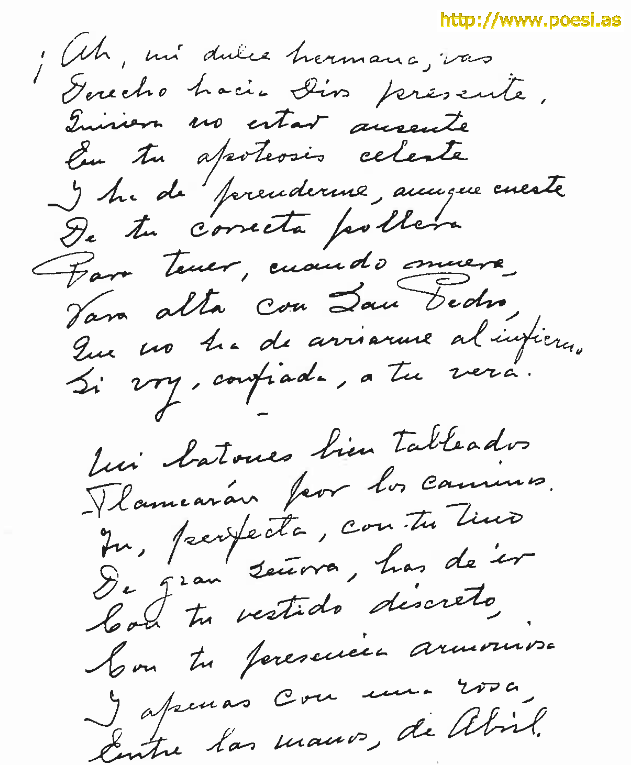 http://www.poesi.as
¡Ah, mi dulce hermana, vas
Derecho hacia Dios presente,
Quisiera no estar ausente
En tu apoteosis celeste
Y he de prenderme, aunque cueste
De tu correcta pollera
Para tener, cuando muera,
Vara alta con San Pedro,
Que no ha de arriarme al infierno
Si voy, confiada, a tu vera.
Mi batones bien tableados
Flamearán por los caminos.
Tu, perfecta, con tu tino
De gran señora, has de ir
Con tu vestido discreto,
Con tu presencia armoniosa
Y apenas con una rosa,
Entre las manos, de Abril.